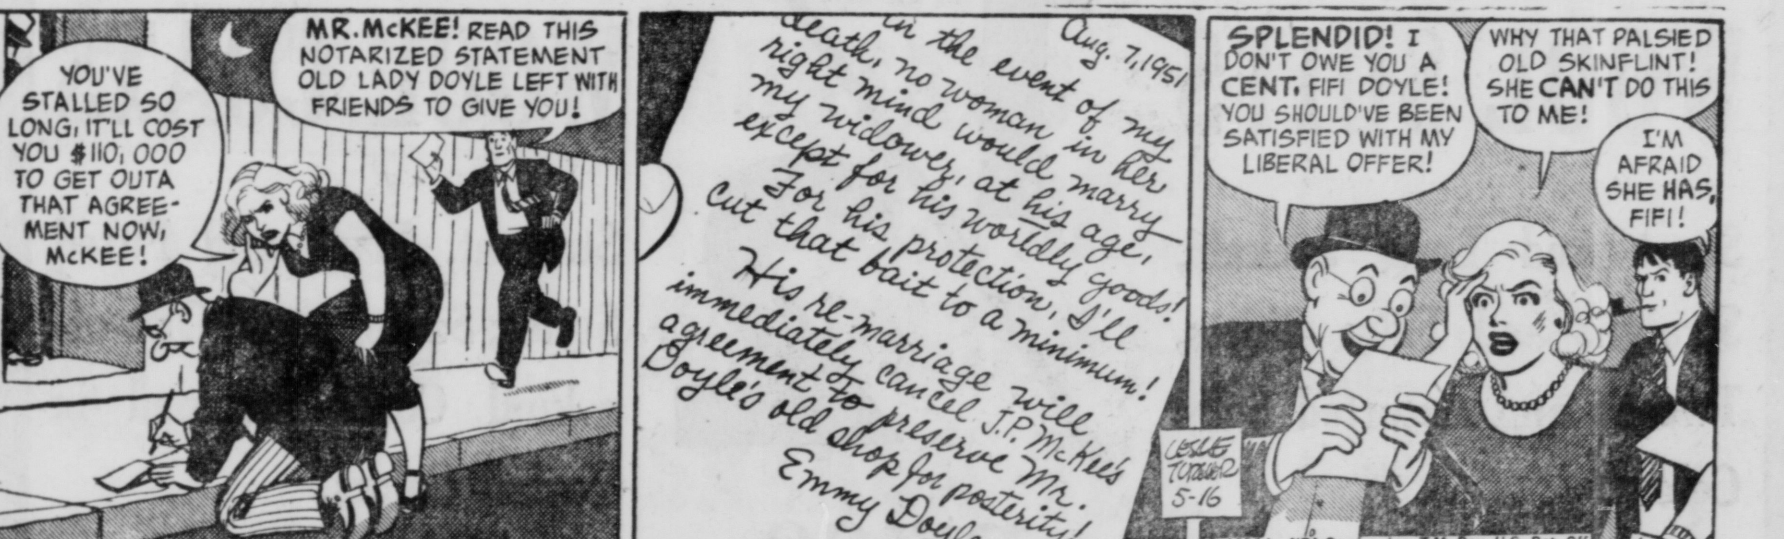 YOU'VE
STALLED SO
LONG, IT'LL COST
YOU $110,000
TO GET OUTA
THAT AGREE-
MENT NOW,
McKEE!
MR. McKEE! READ THIS
NOTARIZED STATEMENT
OLD LADY DOYLE LEFT WITH
FRIENDS TO GIVE YOU!
Aug. 7, 1951
In the event of my
death, no woman in her
right mind would marry
my widower, at his age,
except for his worldly goods!
For his protection, I'll
cut that bait to a minimum!
His re-marriage will
immediately cancel J.P. McKee's
agreement to preserve Mr.
Doyle's old shop for posterity!
Emmy Doyle
SPLENDID! I
DON'T OWE YOU A
CENT, FIFI DOYLE!
YOU SHOULD'VE BEEN
SATISFIED WITH MY
LIBERAL OFFER!
WHY THAT PALSIED
OLD SKINFLINT!
SHE CAN'T DO THIS
TO ME!
I'M
AFRAID
SHE HAS,
FIFI!
LESLIE
TURNER
5-16